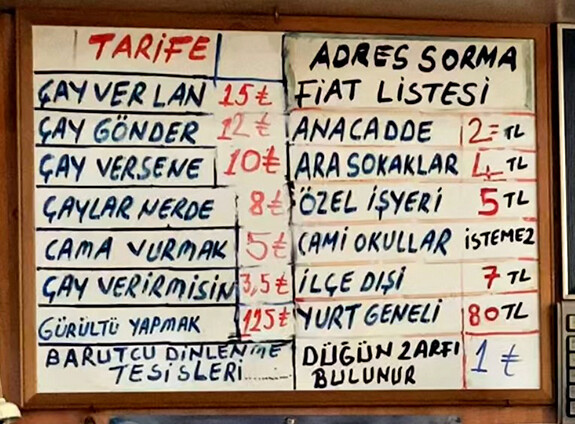 TARİFE
ÇAY VER LAN 15 ₺
ÇAY GÖNDER 12 ₺
ÇAY VERSENE 10 ₺
ÇAYLAR NERDE 8 ₺
CAMA VURMAK 5 ₺
ÇAY VERİRMİSİN 3,5 ₺
GÜRÜLTÜ YAPMAK 125 ₺
BARUTCU DİNLENME
TESİSLERİ..........
ADRES SORMA
FİAT LİSTESİ
ANACADDE 2= TL
ARA SOKAKLAR 4 TL
ÖZEL İŞYERİ 5 TL
CAMİ OKULLAR İSTEMEZ
İLÇE DIŞI 7 TL
YURT GENELİ 80 TL
DÜĞÜN ZARFI
BULUNUR 1 ₺